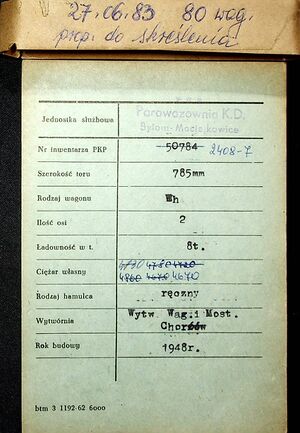 27.06.83 80 wag.
prop. do skreślenia
Jednostka służbowa
Parowozownia K.D.
Bytom-Maciejkowice
Nr inwentarza PKP 50784 2408-7
Szerokość toru 785mm
Rodzaj wagonu Wh
Ilość osi 2
Ładowność w t. 8t.
4730 4780 4720
Ciężar własny 4860 4670 4670
Rodzaj hamulca ręczny
Wytwórnia Wytw. Wag.i Most.
Chorzów
Rok budowy 1948r.
btm 3 1192-62 6000